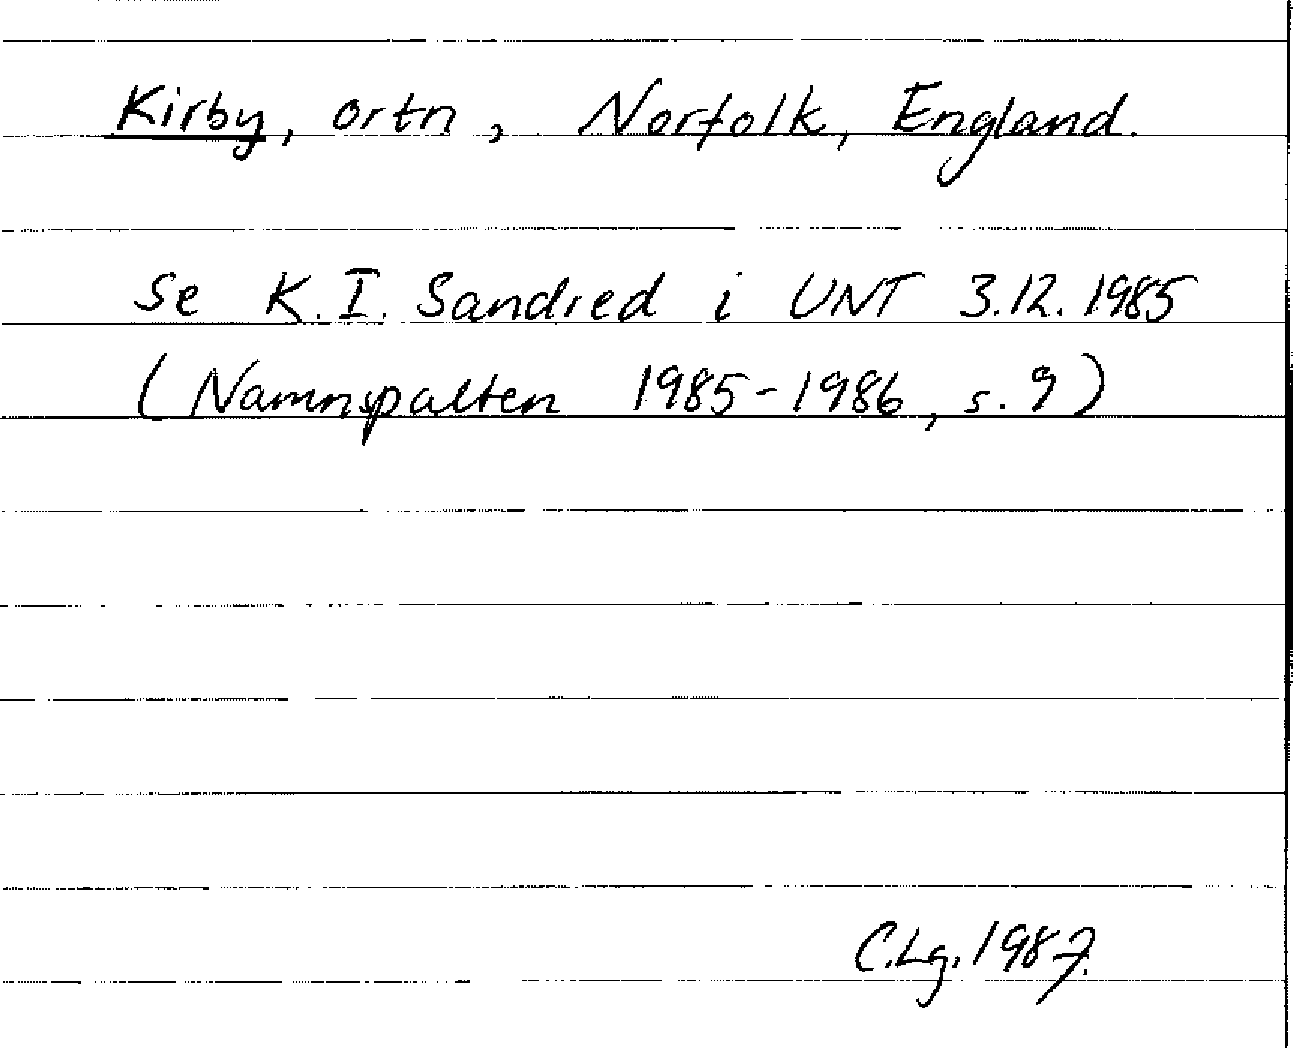 Kirby, ortn, Norfolk, England.
Se K.I. Sandred i UNT 3.12.1985
(Namnspalten 1985-1986, s. 9)
C.Lg. 1987.